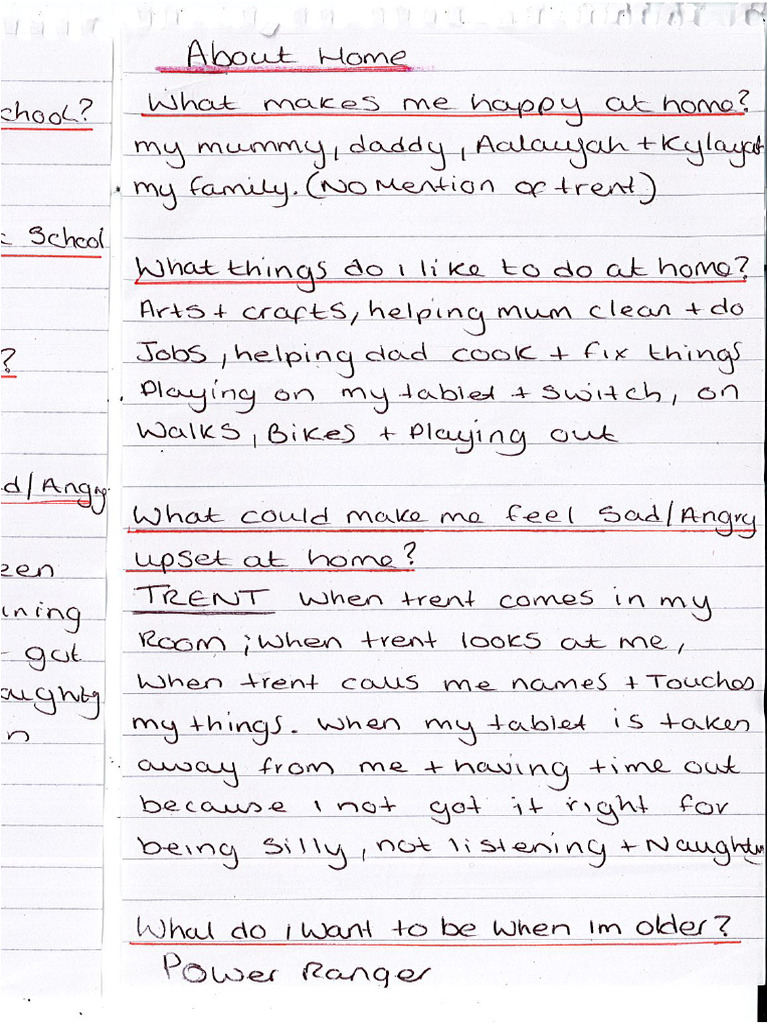 chool?
: School
?
d/Angry
een
ining
- got
aughty
n
About Home
What makes me happy at home?
my mummy, daddy, Aalaiyah + Kylayah
my family. (No Mention of trent)
What things do i like to do at home?
Arts + crafts, helping mum clean + do
Jobs, helping dad cook + fix things
Playing on my tablet + switch, on
Walks, Bikes + Playing out
What could make me feel Sad/Angry
upset at home?
TRENT when trent comes in my
Room; when trent looks at me,
when trent calls me names + Touches
my things. when my tablet is taken
away from me + having time out
because i not got it right for
being silly, not listening + Naughty
What do i want to be when im older?
Power Ranger